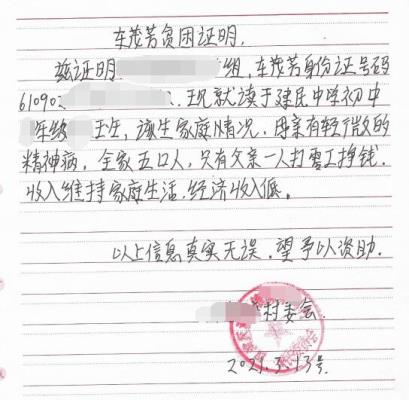 车茂芳贫困证明.
兹证明 组,车茂芳身份证号码
61090 . 现就读于建民中学初中
年级 班生,该生家庭情况.母亲有轻微的
精神病,全家五口人,只有父亲一人打零工挣钱.
收入维持家庭生活.经济收入低。
以上信息真实无误.望予以资助.
村委会.
2021.3.13号.